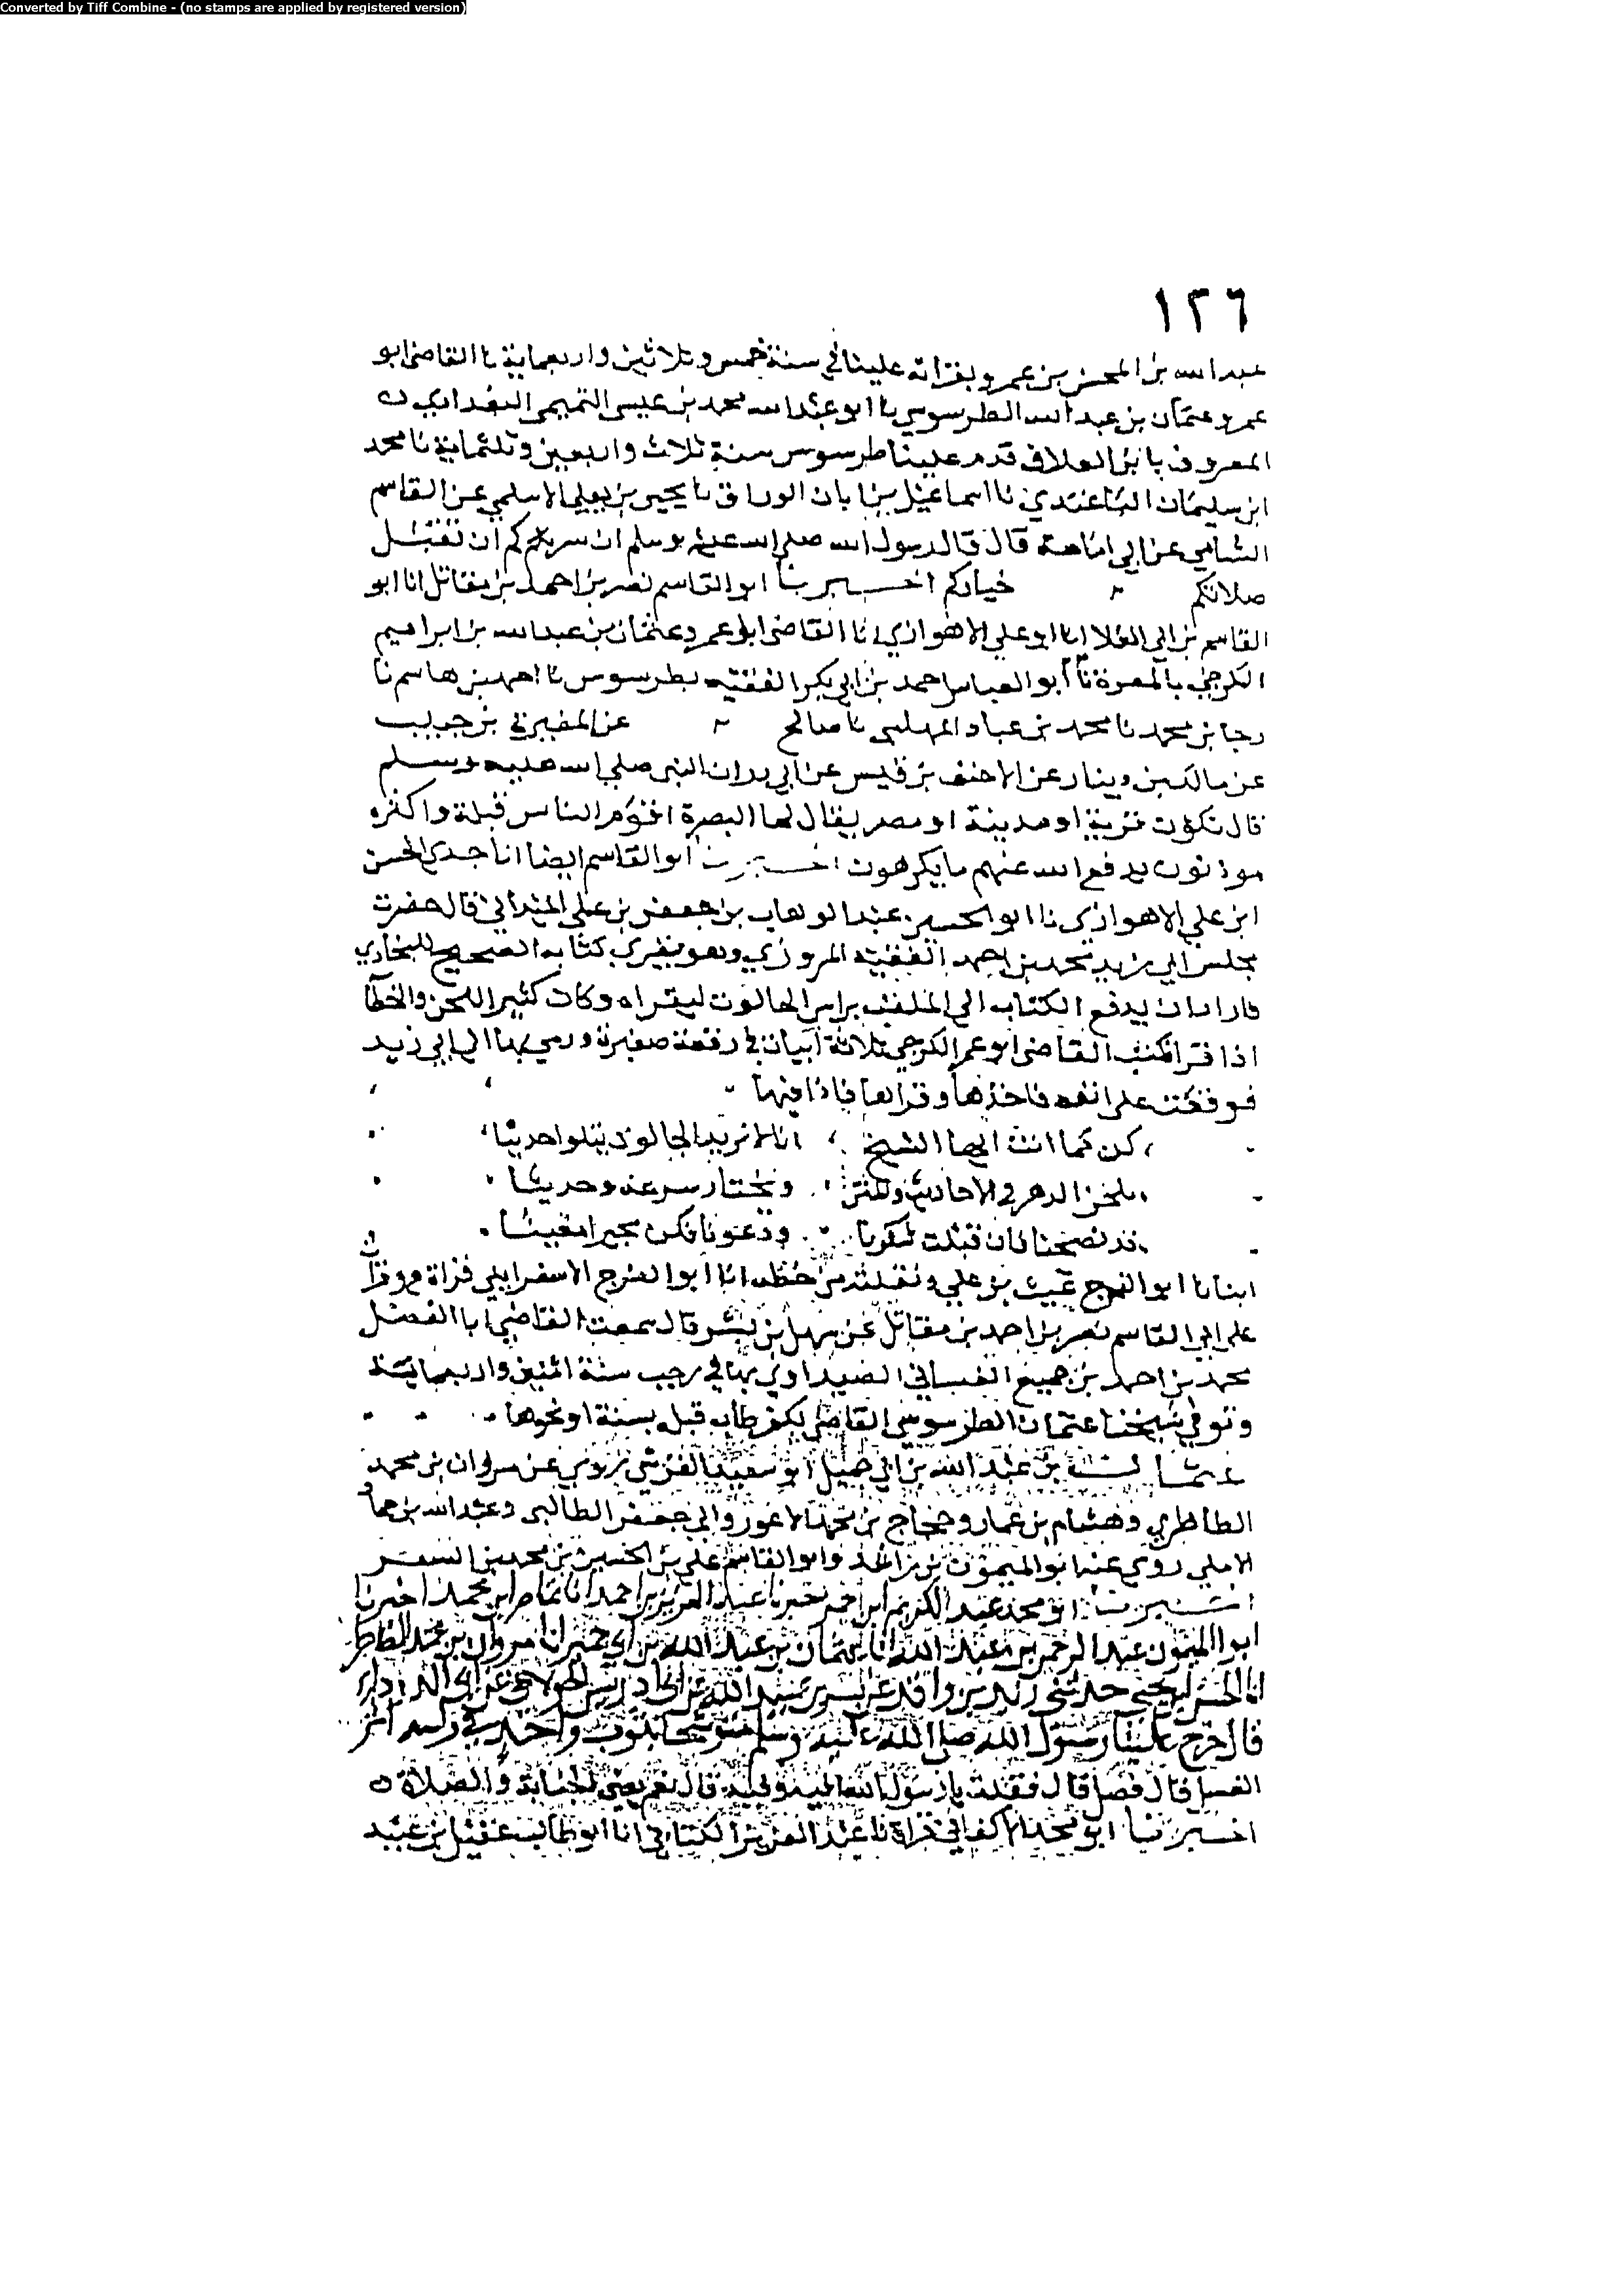 Converted by Tiff Combine - (no stamps are applied by registered version)
١٢٦
عبد الله بن المحسن بن عمرو بقراته علينا في سنة خمس وثلاثين واربعماية نا القاضى ابو
عمرو عثمان بن عبد الله الطرسوسي نا ابو عبد الله محمد بن عيسى التميمى البغدادي
المعروف بابن العلاف قدم علينا طرسوس سنة ثلاث واربعين وثلثماية نا محمد
ابن سليمان الباغندي نا اسماعيل بن ابان الوراق نا يحيى بن يعلى الاسلمي عن القاسم
الشامي عن ابي امامة قال قال رسول الله صلى الله عليه وسلم ان سركم ان تقبل
صلاتكم خياركم اخبرنا ابو القاسم نصر بن احمد بن مقاتل انا ابو
القاسم بن ابي العلا انا ابو علي الاهوازي نا القاضى ابو عمرو عثمان بن عبد الله بن ابراهيم
الكرجي بالمعرة نا ابو العباس احمد بن ابي بكر الفقيه بطرسوس نا احمد بن هاسم نا
رجا بن محمد نا محمد بن عباد المهلبى نا صالح عن المغيرة بن حبيب
عن مالك بن دينار عن الاحنف بن قيس عن ابي ان النبي صلى الله عليه وسلم
قال تكون قرية او مدينة او مصر يقال لها البصرة اقوم الناس قبلة واكثره
موذنون يدفع الله عنهم ما يكرهون اخبرنا ابو القاسم ايضا انا جدي الحسن
ابن علي الاهوازي نا ابو الحسين عبد الوهاب بن جعفر بن علي الميداني قال حضرت
مجلس ابي زيد محمد بن احمد الفقيه المروزي وهو يقري كتابه الصحيح للبخاري
فاراد ان يدفع الكتاب الي الملقب براس الجالوت ليقراه وكان كثير اللحن والخطا
اذا قرا فكتب القاضى ابو عمر الكرجي ثلاثة ابيات في رقعة صغيرة ورمي بها الى ابي زيد
فوقعت على انفه فاخذها وقراها فاذا فيها
كن كما انت ايها الشيخ انا لا نريد الجالوت يتلوا حديثا
يلحن الدهر في الاحاديث والمتن ويختار سرعة وحديثا
قد نصحنا فان قبلت شكرنا ودعونا فكن مجيرا مغيثا
انبانا ابو الفرج غيث بن علي ونقلته من خطه انا ابو الفرج الاسفرايني قراة وقرات
على ابي القاسم نصر بن احمد بن مقاتل عن سهل بن بشر قال سمعت القاضي ابا الفضل
محمد بن احمد بن جميع الغساني الصيداوي بها في رجب سنة اثنين واربعماية
وتوفي شيخنا عثمان الطرسوسى القاضي بكفرطاب قبله بسنة او نحوها
عثمان بن عبد الله بن ابي جميل ابو سعيد القرشى روي عن مروان بن محمد
الطاطري وهشام بن عمار وحجاج بن محمد الاعور وابي جعفر الطالبى وعبد الله بن حماد
الاملي روي عنه ابو الميمون بن راشد وابو القاسم علي بن الحسين بن محمد بن السفر
اخبرنا ابو محمد عبد الكريم ابن حمزة نا عبد العزيز بن احمد انا تمام ابن محمد اخبرنا
ابو الميمون عبد الرحمن بن عبد الله انا عثمان بن عبد الله بن ابي جميل نا مروان بن محمد الطاطري
انا الحسن بن يحيى حدثنى زيد بن واقد عن بسر بن عبيد الله عن ابى ادريس الخولاني عن ابى الدرداء
قال خرج علينا رسول الله صلى الله عليه وسلم متوشحا بثوب واحد في راسه اثر
الغسل قال فصل قال فقلت يا رسول الله قال نعم يعنى الجنابة والصلاة
اخبرنا ابو محمد الاكفاني قراة نا عبد العزيز الكتاني انا ابو طالب عقيل بن عبيد